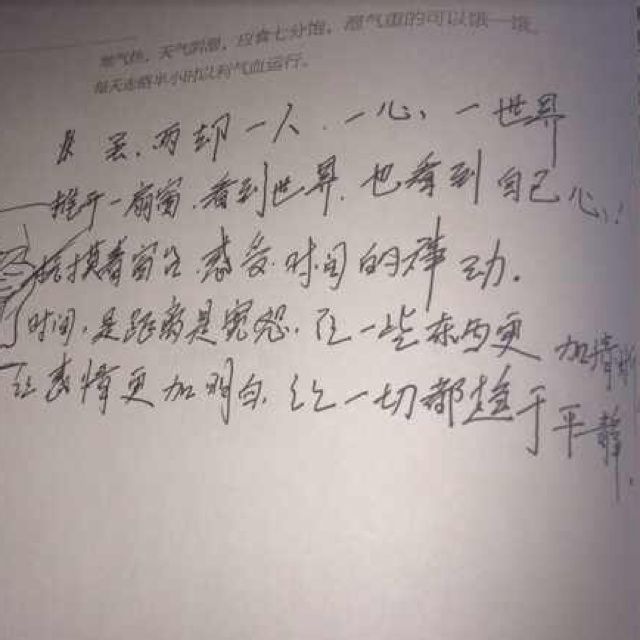 天气闷湿，应食七分饱，湿气重的可以饿一饿。
每天走路半小时以利气血运行。
一人、一心、一世界
推开一扇窗，看到世界，也看到自己心，
抚摸着窗台，感受时间的律动。
时间，是距离是宽恕，让一些东西更加清晰
让感情更加明白，让一切都趋于平静，